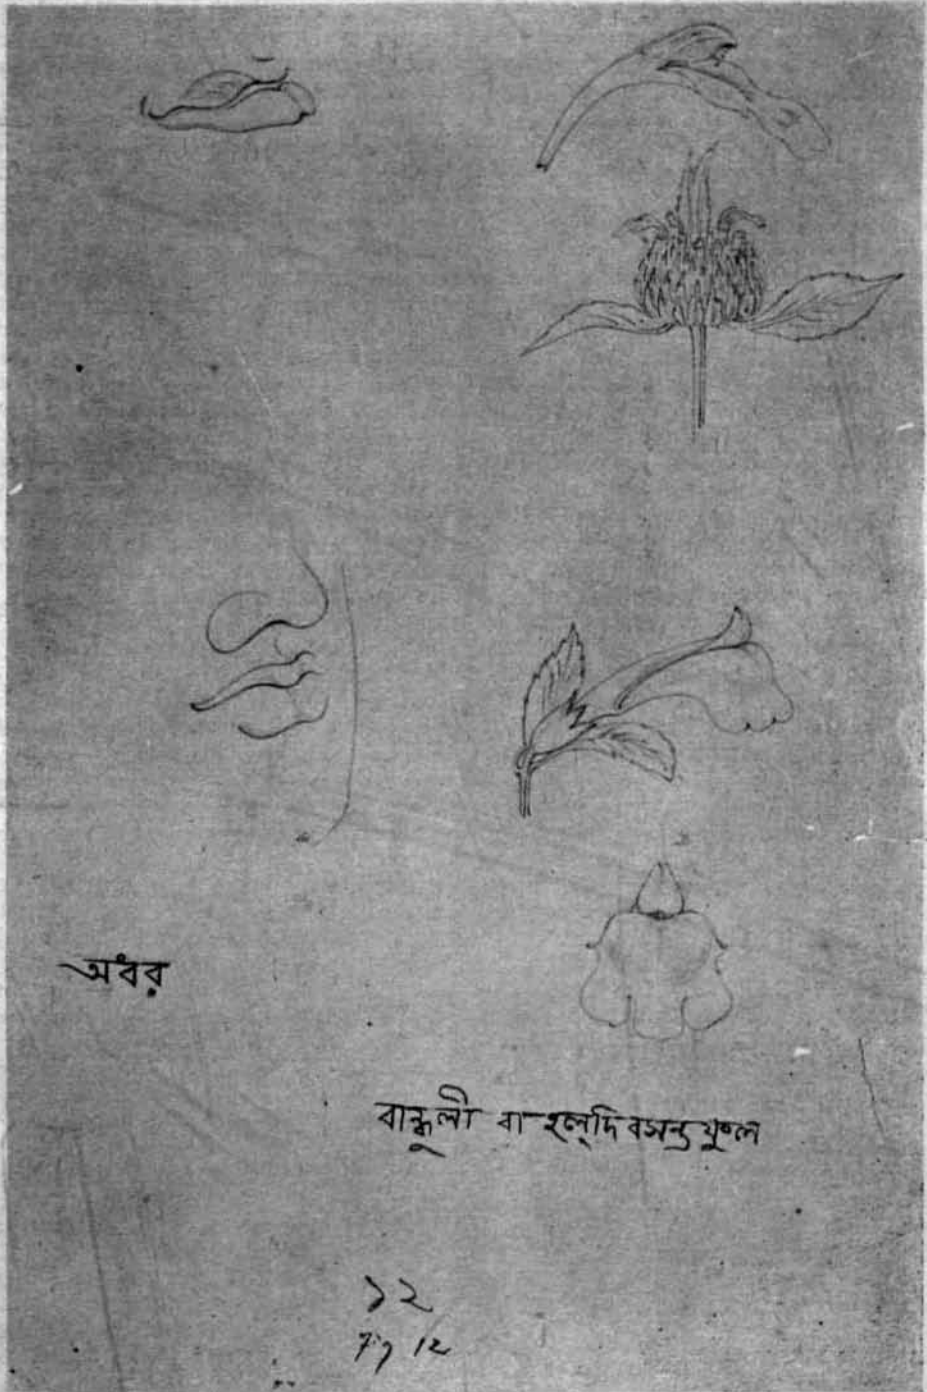 অধর
বান্ধুলী বা হল্‌দি বসন্ত ফুল
১২
Fig 12